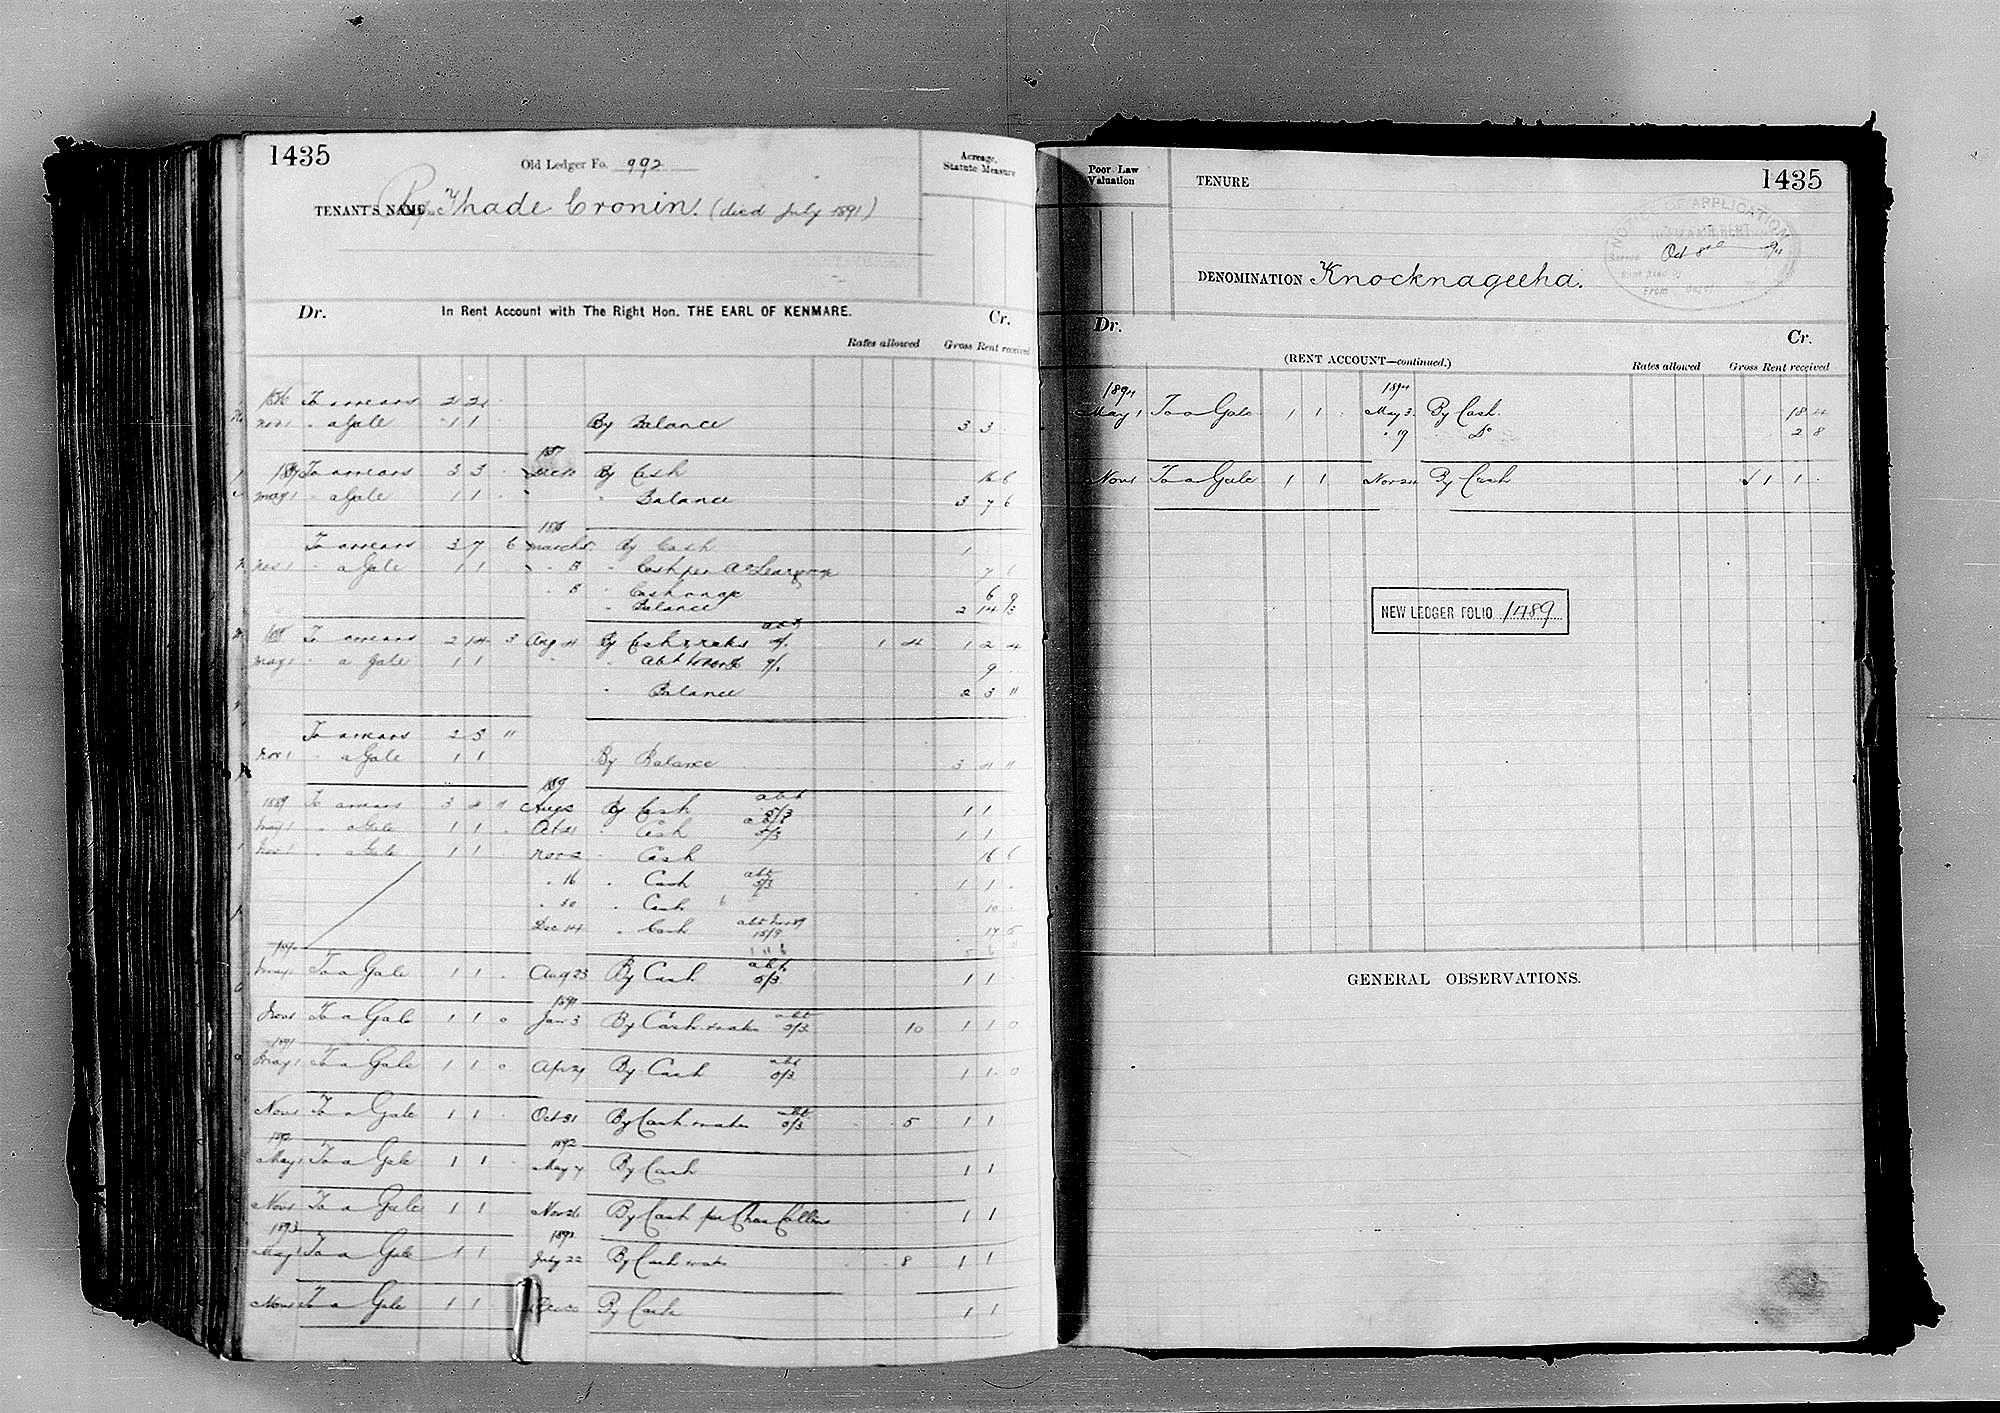 1435
Old Ledger Fo. 992
Acreage, Statute Measure
TENANT'S NAME Thade Cronin. (died July 1891)
Dr. In Rent Account with The Right Hon. THE EARL OF KENMARE. Cr.
Rates allowed Gross Rent received
1886 To arrears 2 2
Nov 1 " a Gale 1 1 By Balance 3 3
1887
1887 To arrears 3 3 Dec By Cash 16 6
May 1 " a Gale 1 1 " Balance 3 7 6
To arrears 3 7 6 March By Cash 1
Nov 1 " a Gale 1 1 " 5 " Cash per
" 5 " Cash 6 9
" Balance 2 14 3
To arrears 2 14 3 Aug 4 By Cash & rates 4/. 1 4 1 2 4
May 1 " a Gale 1 1 " 9/. 9
" Balance 2 3 "
To arrears 2 3 "
Nov 1 " a Gale 1 1 By Balance 3 4 "
1889
1889 To arrears 3 4 " Aug By Cash abt 5/3 1 1
May 1 " a Gale 1 1 Oct 21 " Cash abt 5/3 1 1
Nov 1 " a Gale 1 1 Nov 2 " Cash 16 6
" 16 " Cash abt 5/3 1 1
" 30 " Cash 10
Dec 14 " Cash abt Nov 89 15/9 17 5
1 " 6 5 6 "
May 1 To a Gale 1 1 Aug 23 By Cash abt 5/3 1 1
1891
Nov 1 To a Gale 1 1 0 Jan 3 By Cash & rates abt 5/3 10 1 1 0
1891
May 1 To a Gale 1 1 0 Apr 24 By Cash abt 5/3 1 1 0
Nov 1 To a Gale 1 1 Oct 31 By Cash & rates abt 5/3 5 1 1
1892 1892
May 1 To a Gale 1 1 May 7 By Cash 1 1
Nov 1 To a Gale 1 1 Nov 26 By Cash per Chas Collins 1 1
1893 1893
May 1 To a Gale 1 1 July 22 By Cash & rates 8 1 1
Nov 1 To a Gale 1 1 Dec By Cash 1 1
Poor Law Valuation
TENURE
1435
NOTICE OF APPLICATION
Oct 8 94
From
DENOMINATION Knocknageeha.
Dr. Cr.
(RENT ACCOUNT—continued.)
Rates allowed Gross Rent received
1894 1894
May 1 To a Gale 1 1 May 3 By Cash 18 4
" 19 " Do 2 8
Nov 1 To a Gale 1 1 Nov 24 By Cash √ 1 1
NEW LEDGER FOLIO 1489
GENERAL OBSERVATIONS.